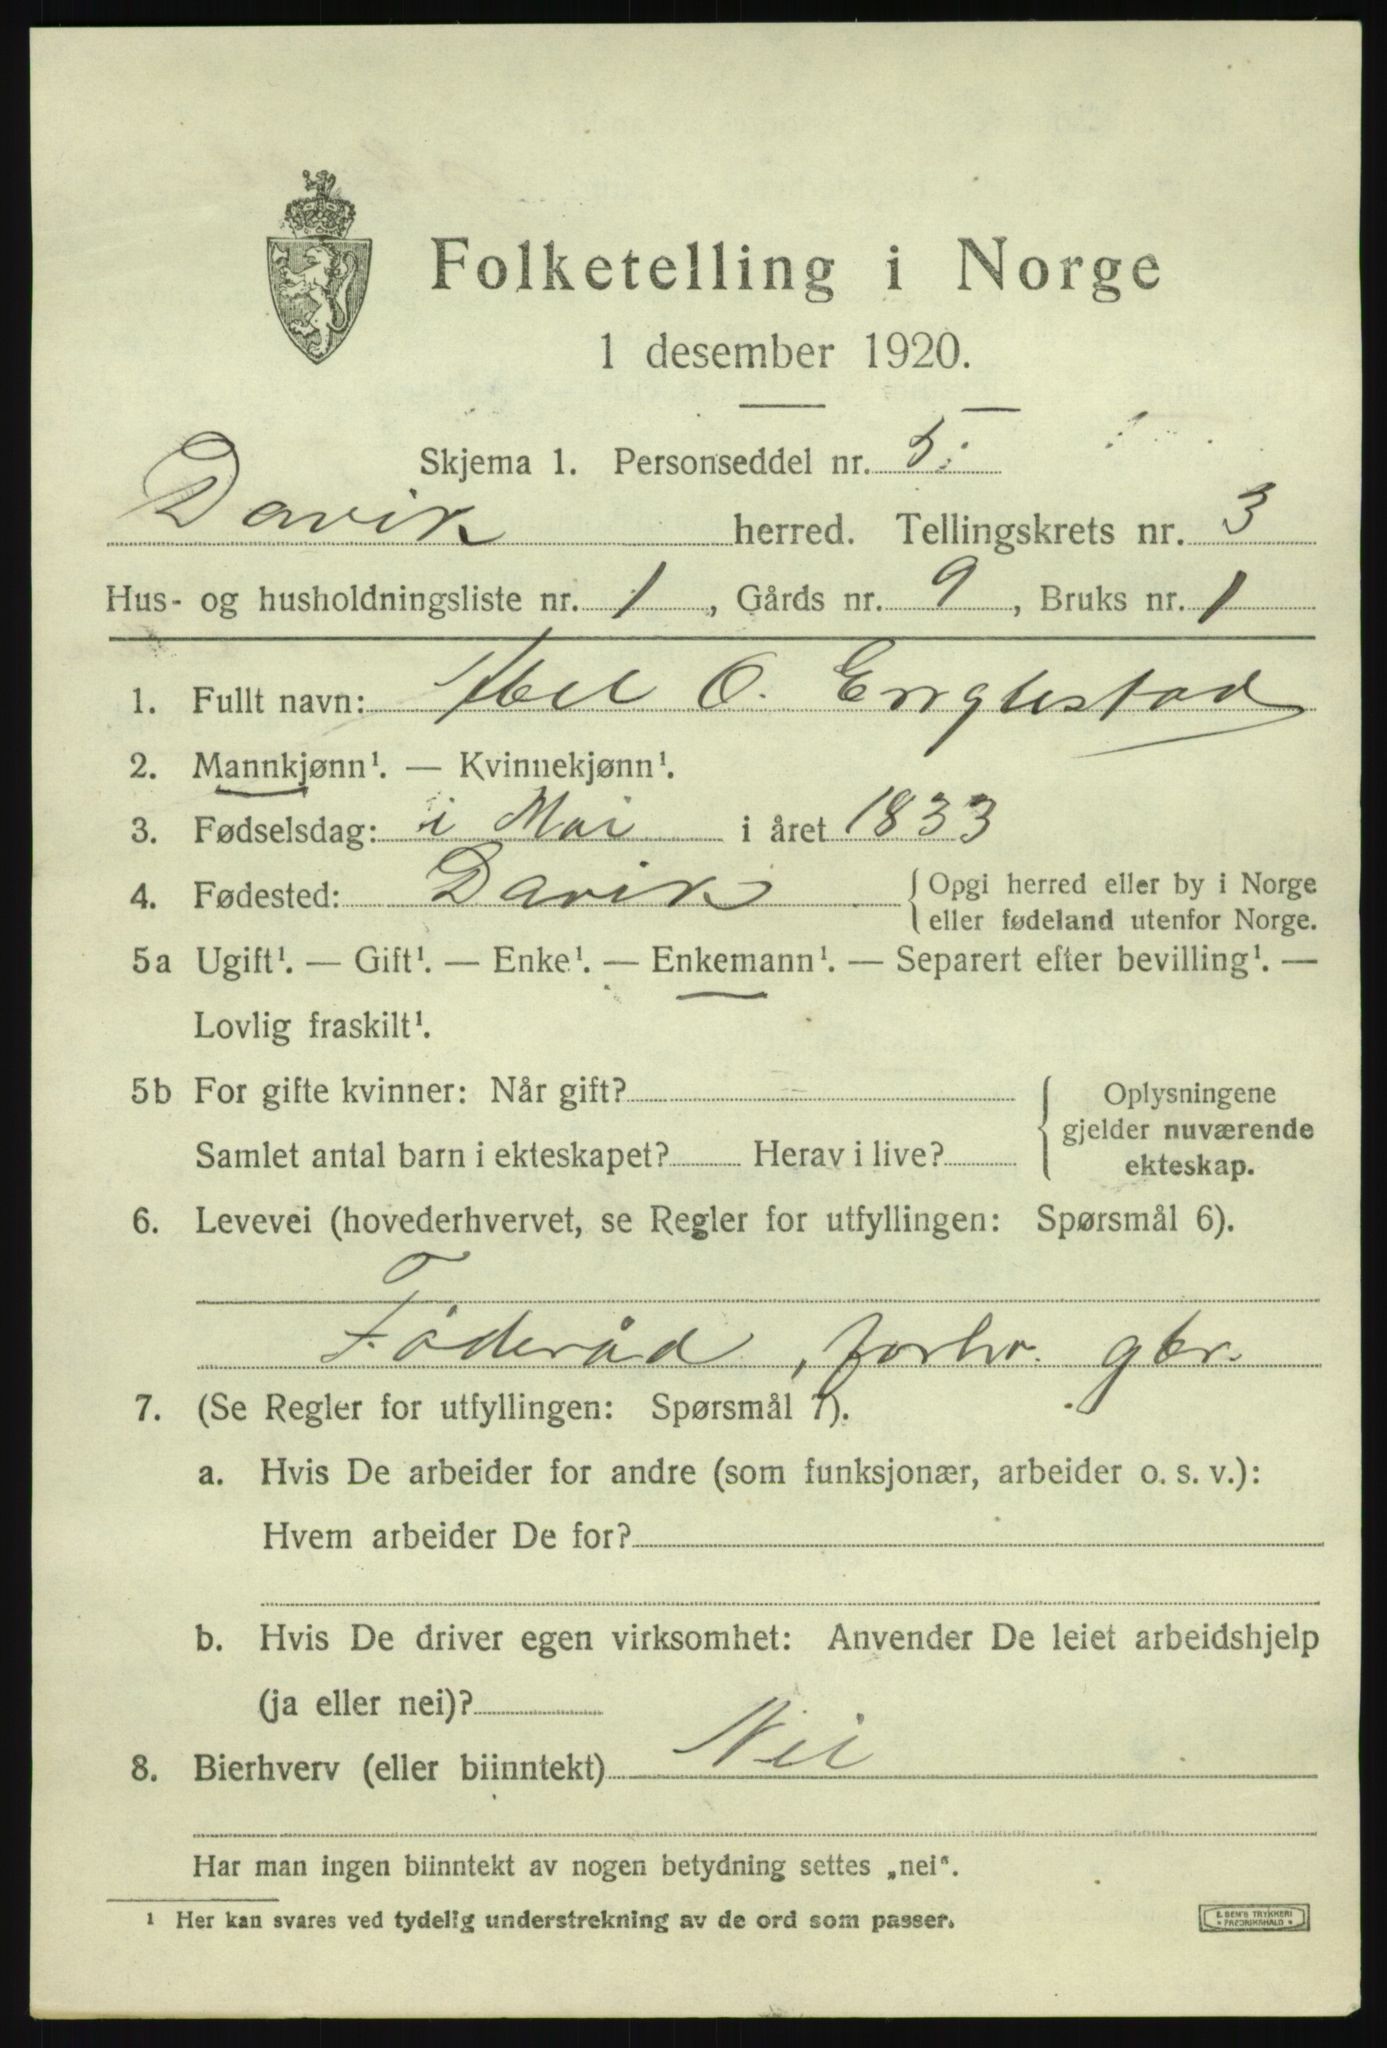 Folketelling i Norge
1 desember 1920.
Skjema 1. Personseddel nr. 5.
Davik herred. Tellingskrets nr. 3
Hus- og husholdningsliste nr. 1, Gårds nr. 9, Bruks nr. 1
1. Fullt navn: Abel O. Englestad
2. Mannkjønn¹. — Kvinnekjønn¹.
3. Fødselsdag: i Mai i året 1833
4. Fødested: Davik { Opgi herred eller by i Norge
eller fødeland utenfor Norge.
5a Ugift¹. — Gift¹. — Enke¹. — Enkemann¹. — Separert efter bevilling¹. —
Lovlig fraskilt¹.
5b For gifte kvinner: Når gift?
Samlet antal barn i ekteskapet? Herav i live?
{ Oplysningene
gjelder nuværende
ekteskap.
6. Levevei (hovederhvervet, se Regler for utfyllingen: Spørsmål 6).
Føderåd, forhv. gbr.
7. (Se Regler for utfyllingen: Spørsmål 7).
a. Hvis De arbeider for andre (som funksjonær, arbeider o. s. v.):
Hvem arbeider De for?
b. Hvis De driver egen virksomhet: Anvender De leiet arbeidshjelp
(ja eller nei)?
8. Bierhverv (eller biinntekt) Nei
Har man ingen biinntekt av nogen betydning settes „nei“.
¹ Her kan svares ved tydelig understrekning av de ord som passer.
E. SEM'S TRYKKERI
• FREDRIKSHALD •